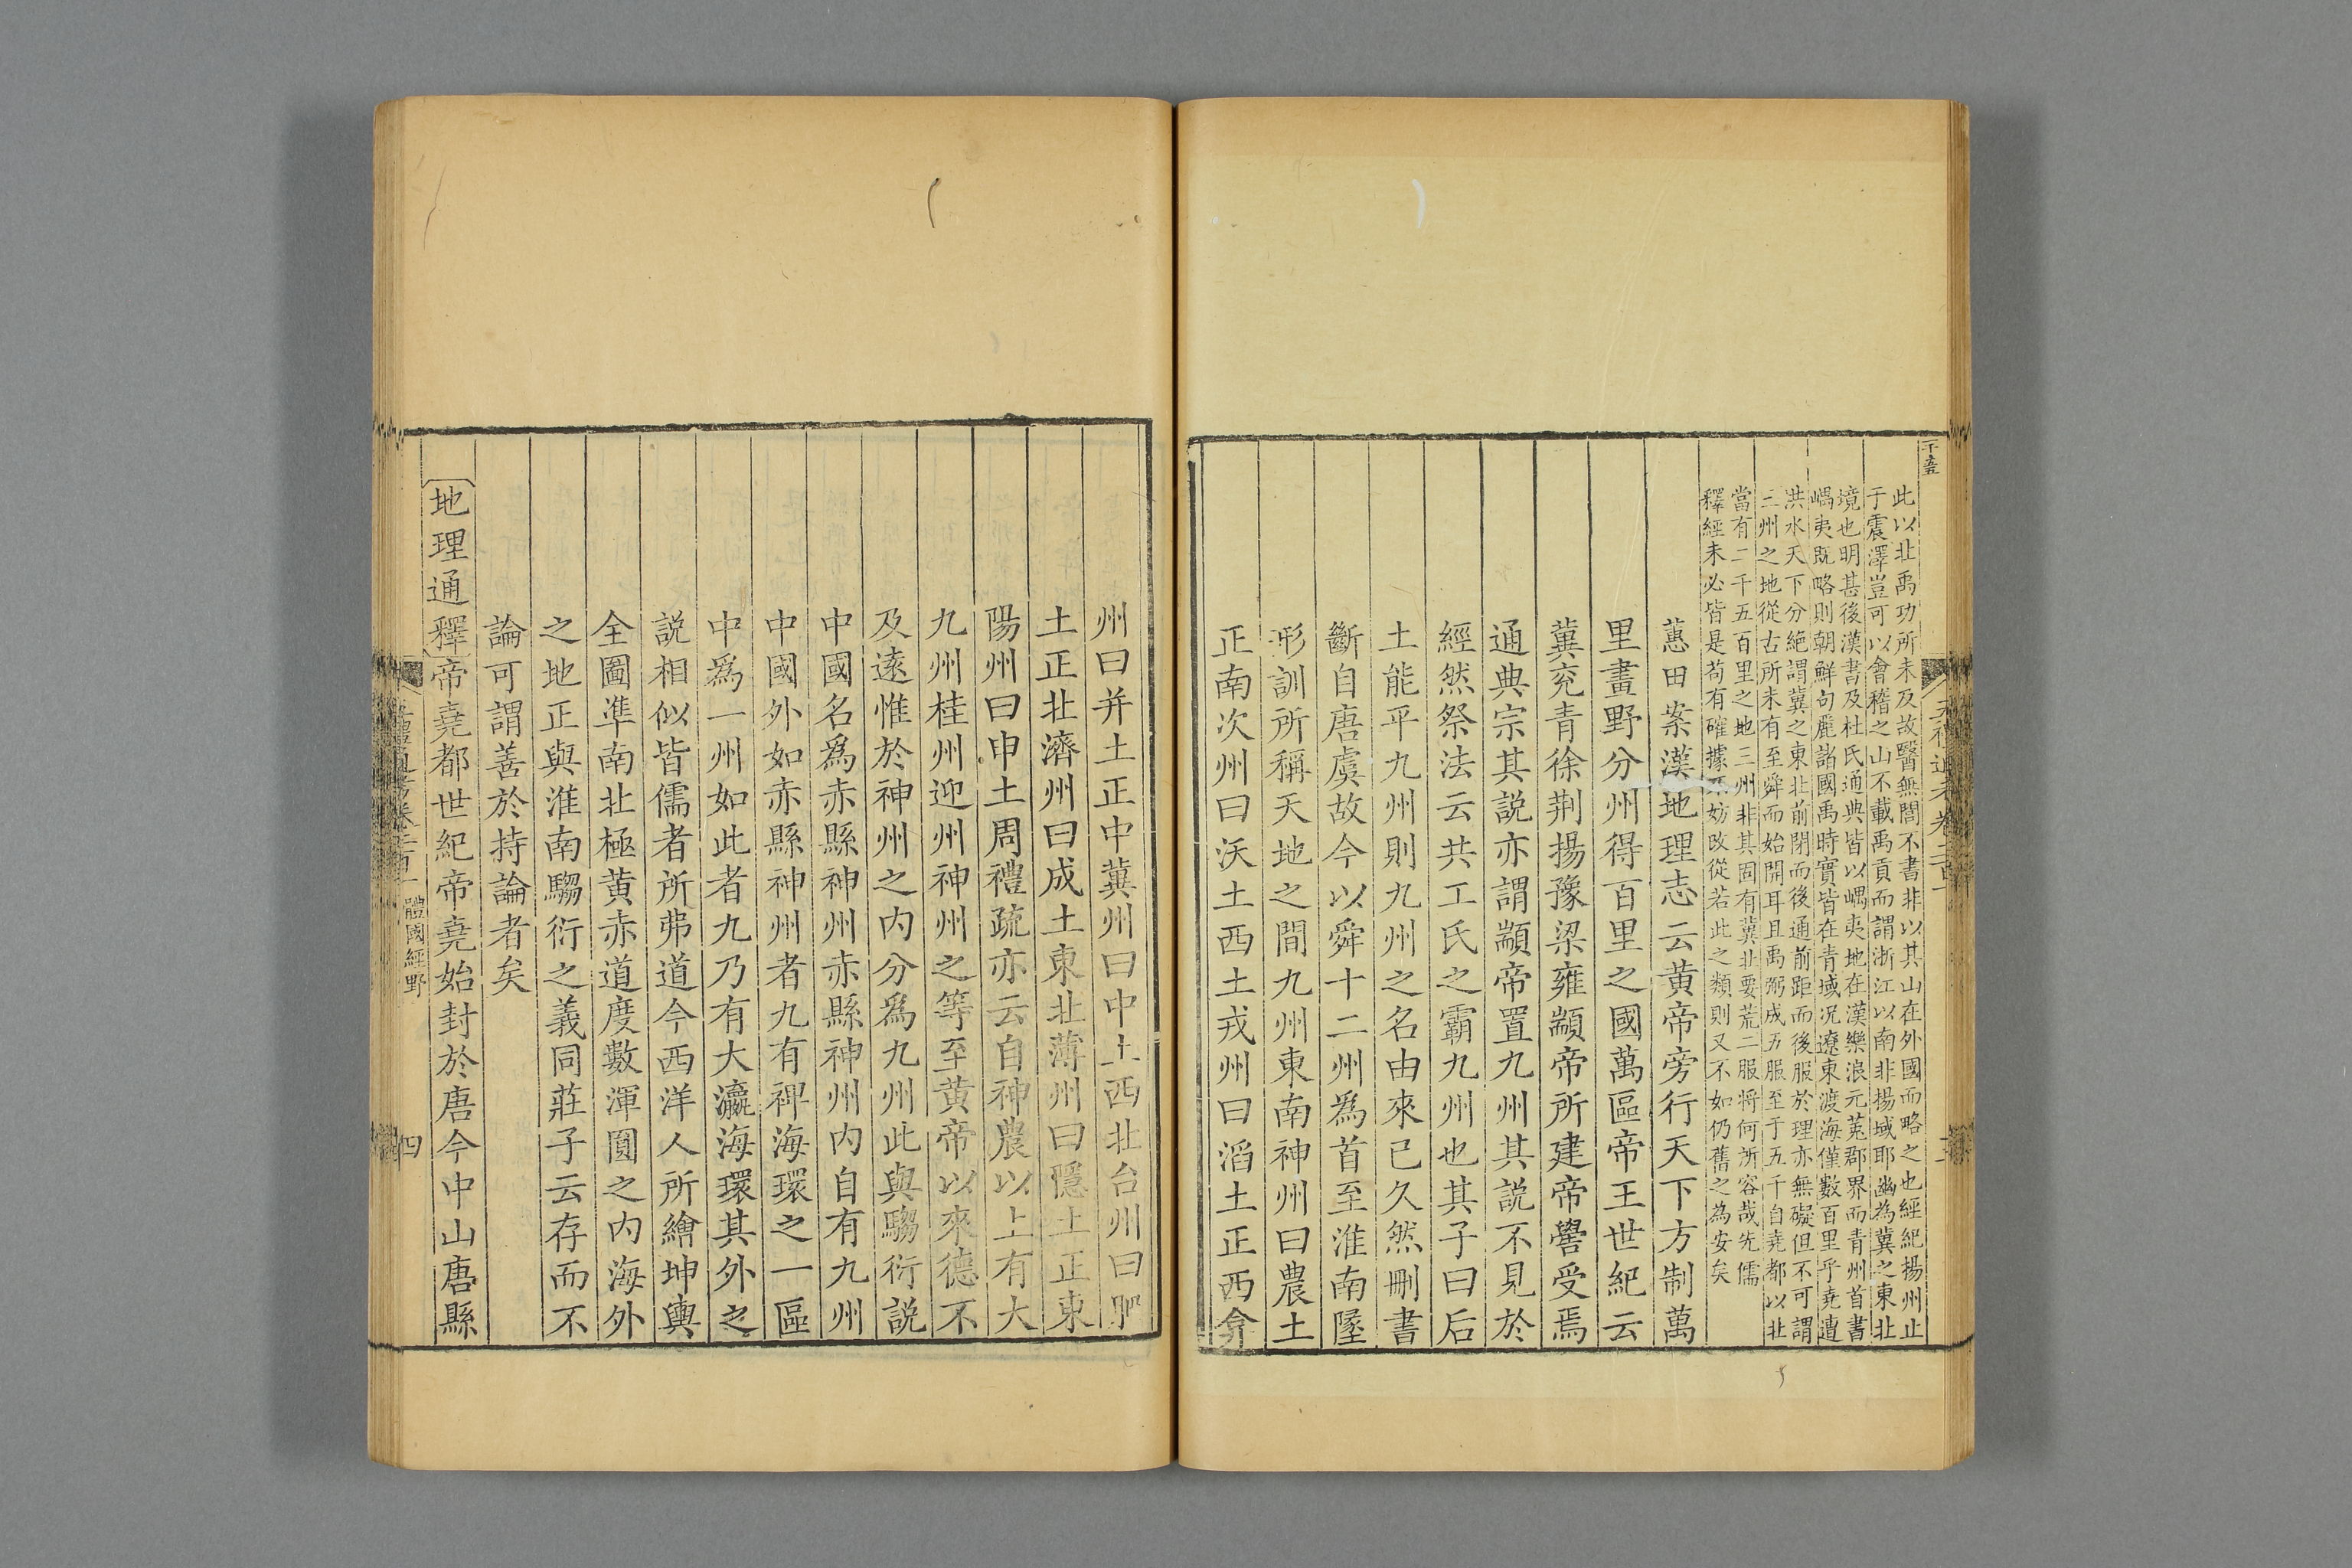 此以北禹功所未及故醫無閭不書非以其山在外國而略之也經紀揚州止
于震澤豈可以會稽之山不載禹貢而謂浙江以南非揚域耶幽為冀之東北
境也明甚後漢書及杜氏通典皆以嵎夷地在漢樂浪元菟郡界而青州首書
嵎夷既略則朝鮮句麗諸國禹時實皆在青域况遼東渡海僅數百里乎堯遭
洪水天下分絶謂冀之東北前閉而後通前距而後服於理亦無礙但不可謂
二州之地從古所未有至舜而始開耳且禹弼成五服至于五千自堯都以北
當有二千五百里之地三州非其固有冀北要荒二服将何所容哉先儒
釋經未必皆是苟有確據不妨改從若此之類則又不如仍舊之為安矣
蕙田案漢地理志云黄帝旁行天下方制萬
里畫野分州得百里之國萬區帝王世紀云
冀兖青徐荆揚豫梁雍顓帝所建帝嚳受焉
通典宗其説亦謂顓帝置九州其説不見於
經然祭法云共工氏之霸九州也其子曰后
土能平九州則九州之名由來已久然刪書
斷自唐虞故今以舜十二州為首至淮南墬
形訓所稱天地之間九州東南神州曰農土
正南次州曰沃土西土戎州曰滔土正西弇
州曰并土正中冀州曰中土西北台州曰肥
土正北濟州曰成土東北薄州曰隱土正東
陽州曰申土周禮疏亦云自神農以上有大
九州桂州迎州神州之等至黄帝以來德不
及遠惟於神州之内分爲九州此與騶衍説
中國名爲赤縣神州赤縣神州内自有九州
中國外如赤縣神州者九有裨海環之一區
中爲一州如此者九乃有大瀛海環其外之
説相似皆儒者所弗道今西洋人所繪坤輿
全圖準南北極黄赤道度數渾圓之内海外
之地正與淮南騶衍之義同莊子云存而不
論可謂善於持論者矣
地理通釋帝堯都世紀帝堯始封於唐今中山唐縣
體國經野
四